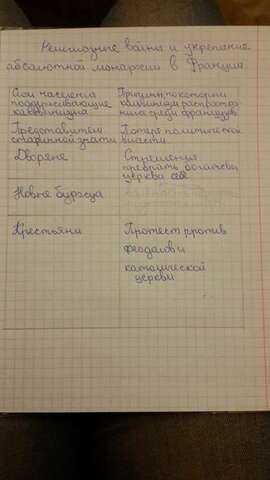 Религиозные войны и укрепление
абсолютной монархии в Франции.
Слои населения
поддерживающие
кальвинизм
Причины, по которым
кальвинизм распростра-
нился среди французов
Представители
старинной знати
Потеря политической
власти
Дворяне
Стремления
прибрать богатсва
церкви себе
Новые буржуа
Крестьяни
Протест против
феодалов и
католической
церкви